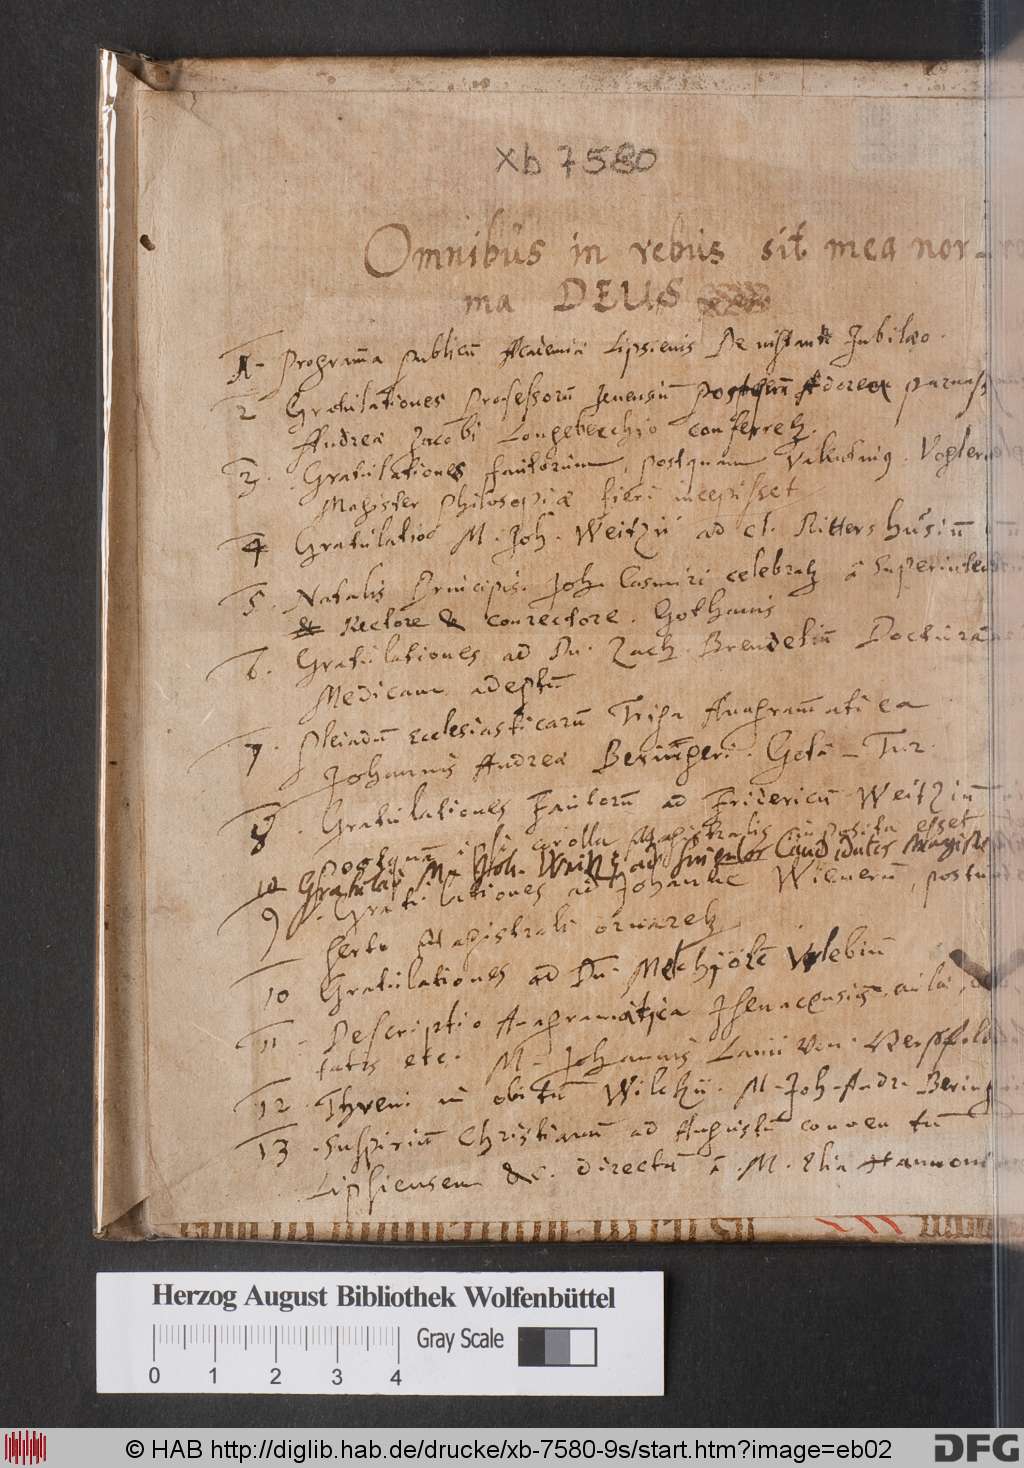 Xb 7580
Omnibus in rebus sit mea nor-
ma DEUS
1. Programma publicũ Academiæ Lipsiensis De instante Jubilæo.
2 Gratulationes Professorũ Jenensiũ postquã
Andreæ Jacobi Langebecchio conferretz.
3. Gratulationes fautorum, postquam Valentinus Vogler
Magister philosopiæ fieri incepisset
4 Gratulatio M. Joh. Weitzii ad cl. Rittershusiũ
5. Natalis Principis Joh. Casmiri celebratz â Superintend
& Rectore & conrectore. Gothanis
6. Gratulationes ad Dn. Zach. Brendeliũ Docturã
Medicam adeptũ
7. Pleiadum Ecclesiasticarũ Triga Anagrammatica
Johannis Andreæ Beringeri. Gotâ-Tur.
8. Gratulationes Fautorũ ad Fridericũ Weitziũ
postquã ipsi corolla Magistralis imposita esset
10 Gratulat M. Joh. Weitz ad Candidatos Magist
9. Gratulationes ad Johannē
serto Magistrali ornaretz
10 Gratulationes ad Dn. Melchiorē
11 - Descriptio Anagramatica Isenacensis aulæ,
tatis etc. M. Johannis
12. Threni in obitũ Wilckii. M. Joh. Andr. Bering
13. Suspiriũ Christianũ ad Augustũ conventũ
Lipsiensem &c. directũ â M. Elia
Herzog August Bibliothek Wolfenbüttel
Gray Scale
0 1 2 3 4
© HAB http://diglib.hab.de/drucke/xb-7580-9s/start.htm?image=eb02
DFG